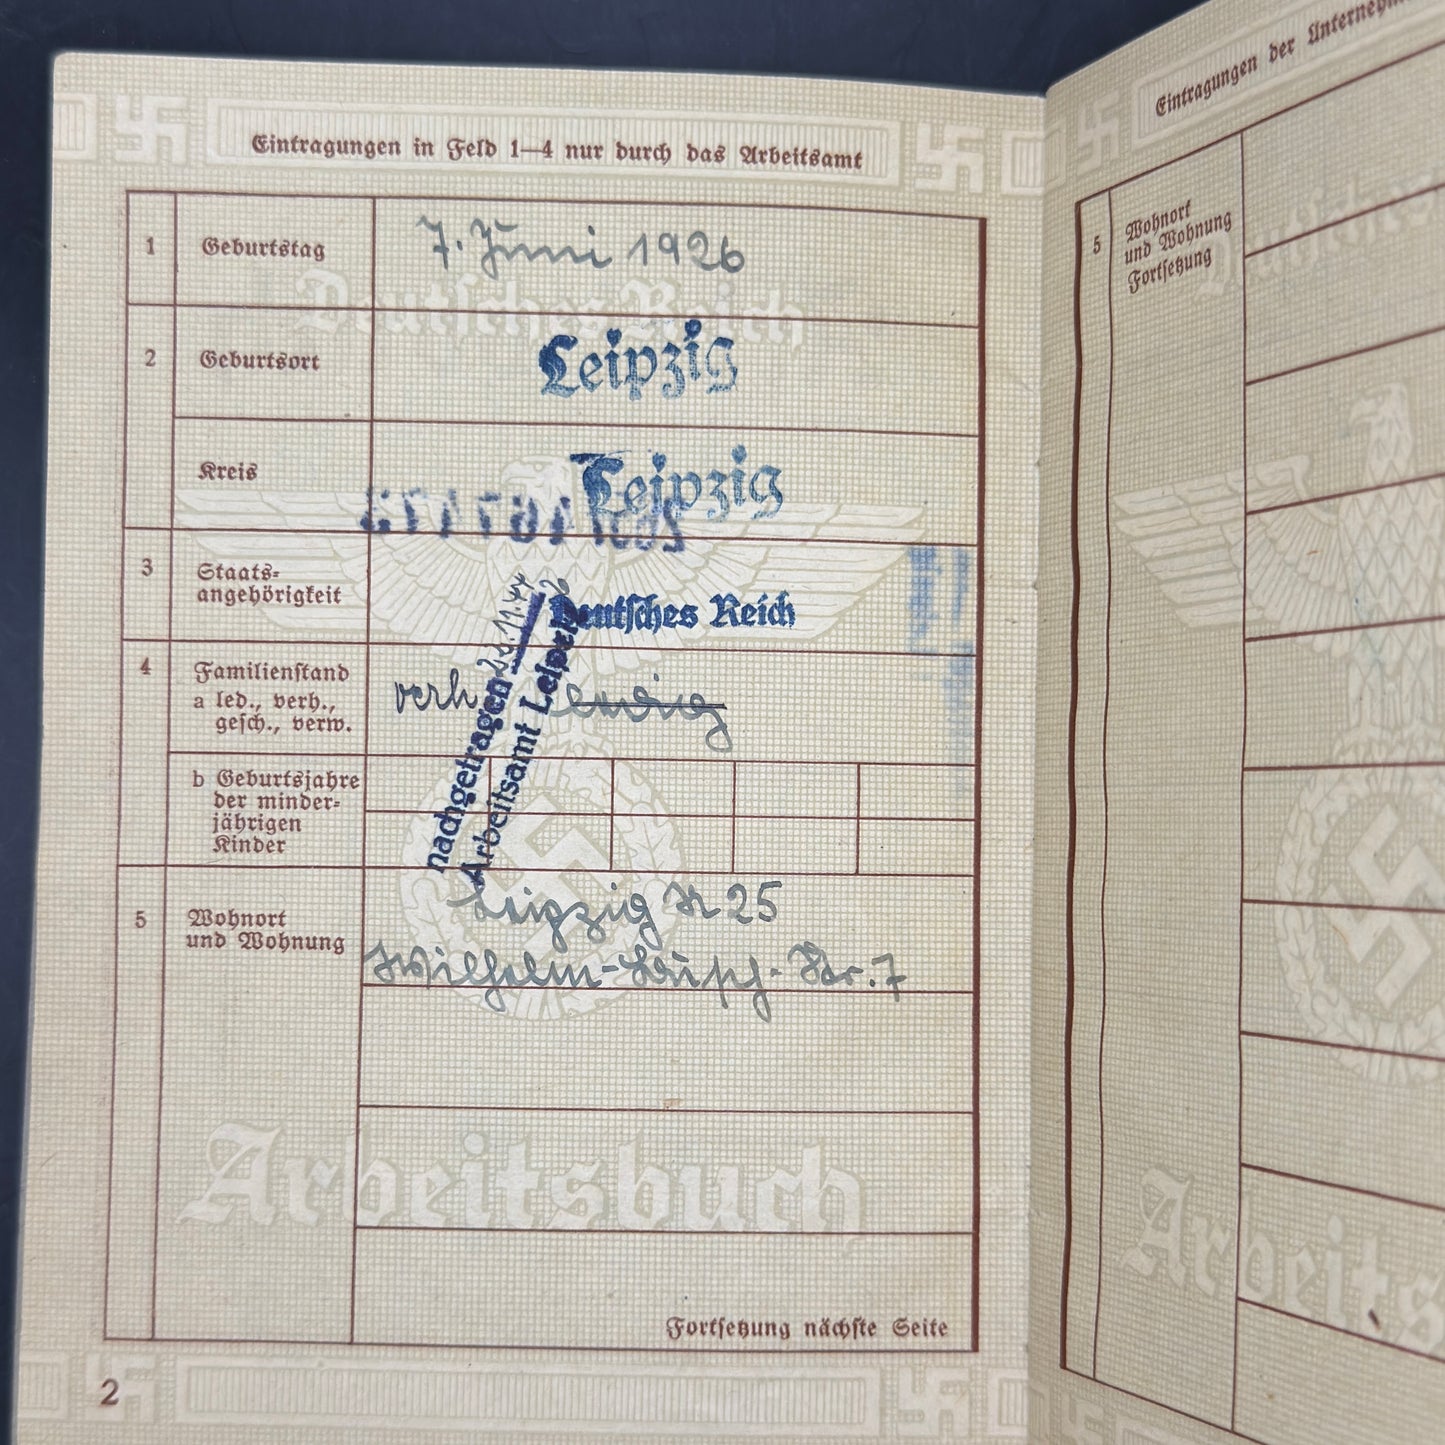 Eintragungen in Feld 1—4 nur durch das Arbeitsamt
1 Geburtstag 7. Juni 1926
Deutsches Reich
2 Geburtsort Leipzig
Kreis Leipzig
3 Staats-
angehörigkeit Deutsches Reich
4 Familienstand
a led., verh.,
gesch., verw. verh. ledig
nachgetragen
Arbeitsamt Leipzig
b Geburtsjahre
der minder-
jährigen
Kinder
5 Wohnort
und Wohnung
Leipzig N 25
Wilhelm-Busch-Str. 7
Arbeitsbuch
Fortsetzung nächste Seite
2
Eintragungen der
5 Wohnort
und Wohnung
Fortsetzung